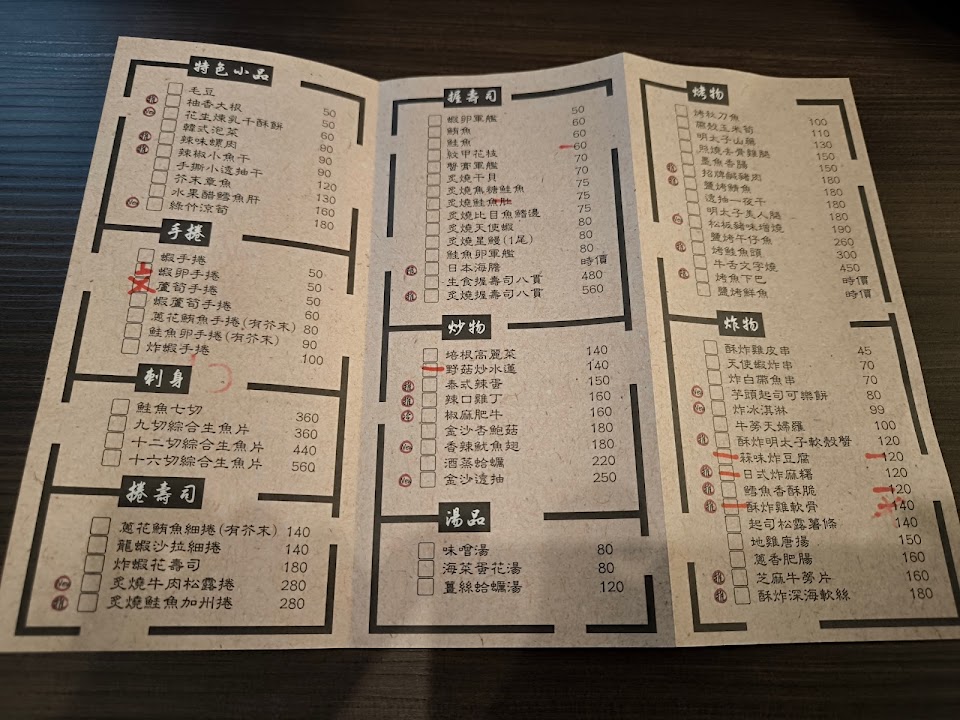 特色小品
毛豆 50
柚香大根 50
花生煉乳干酥餅 60
韓式泡菜 90
辣味螺肉 90
辣椒小魚干 90
手撕小透抽干 120
芥末章魚 130
水果醋鱈魚肝 160
綠竹涼筍 180
手捲
蝦手捲 50
蝦卵手捲 50
蘆筍手捲 50
蝦蘆筍手捲 60
蔥花鮪魚手捲(有芥末) 80
鮭魚卵手捲(有芥末) 90
炸蝦手捲 100
刺身
鮭魚七切 360
九切綜合生魚片 360
十二切綜合生魚片 440
十六切綜合生魚片 560
捲壽司
蔥花鮪魚細捲(有芥末) 140
龍蝦沙拉細捲 140
炸蝦花壽司 180
炙燒牛肉松露捲 280
炙燒鮭魚加州捲 280
握壽司
蝦卵軍艦 50
鮪魚 60
鮭魚 60
紋甲花枝 60
蟹膏軍艦 70
炙燒干貝 70
炙燒焦糖鮭魚 75
炙燒鮭魚肚 75
炙燒比目魚鰭邊 80
炙燒天使蝦 80
炙燒星鰻(1尾) 80
鮭魚卵軍艦 80
日本海膽 時價
生食握壽司八貫 480
炙燒握壽司八貫 560
炒物
培根高麗菜 140
野菇炒水蓮 140
泰式辣蛋 150
辣口雞丁 160
椒麻肥牛 160
金沙杏鮑菇 180
香辣魷魚翅 180
酒蒸蛤蠣 220
金沙透抽 250
湯品
味噌湯 80
海菜蛋花湯 80
薑絲蛤蠣湯 120
烤物
烤秋刀魚 100
帶殼玉米筍 110
明太子山藥 130
照燒去骨雞腿 150
墨魚香腸 150
招牌鹹豬肉 180
鹽烤鯖魚 180
透抽一夜干 180
明太子美人腿 180
松板豬味增燒 190
鹽烤午仔魚 260
烤鮭魚頭 300
牛舌文字燒 450
烤魚下巴 時價
鹽烤鮮魚 時價
炸物
酥炸雞皮串 45
天使蝦炸串 70
炸白帶魚串 70
芋頭起司可樂餅 80
炸冰淇淋 99
牛蒡天婦羅 100
酥炸明太子軟殼蟹 120
蒜味炸豆腐 120
日式炸麻糬 120
鱈魚香酥脆 120
酥炸雞軟骨 140
起司松露薯條 140
地雞唐揚 150
蔥香肥腸 160
芝麻牛蒡片 160
酥炸深海軟絲 180